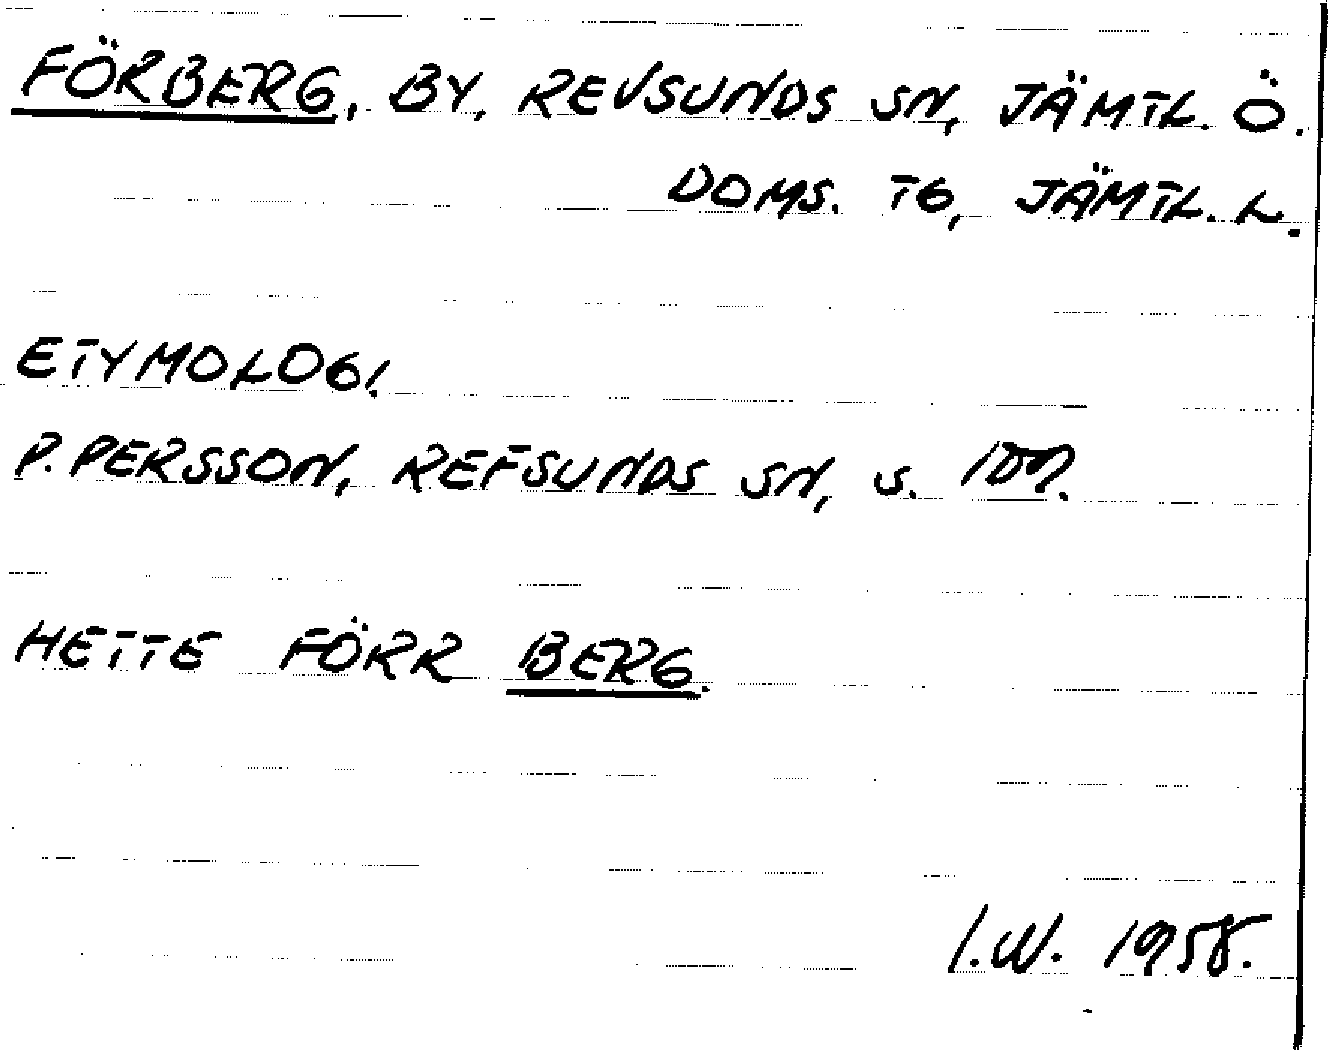 FÖRBERG, BY, REVSUNDS SN, JÄMTL. Ö.
DOMS. TG, JÄMTL. L.
ETYMOLOGI.
P. PERSSON, REFSUNDS SN, S.
HETTE FÖRR BERG.
I.W. 1958.